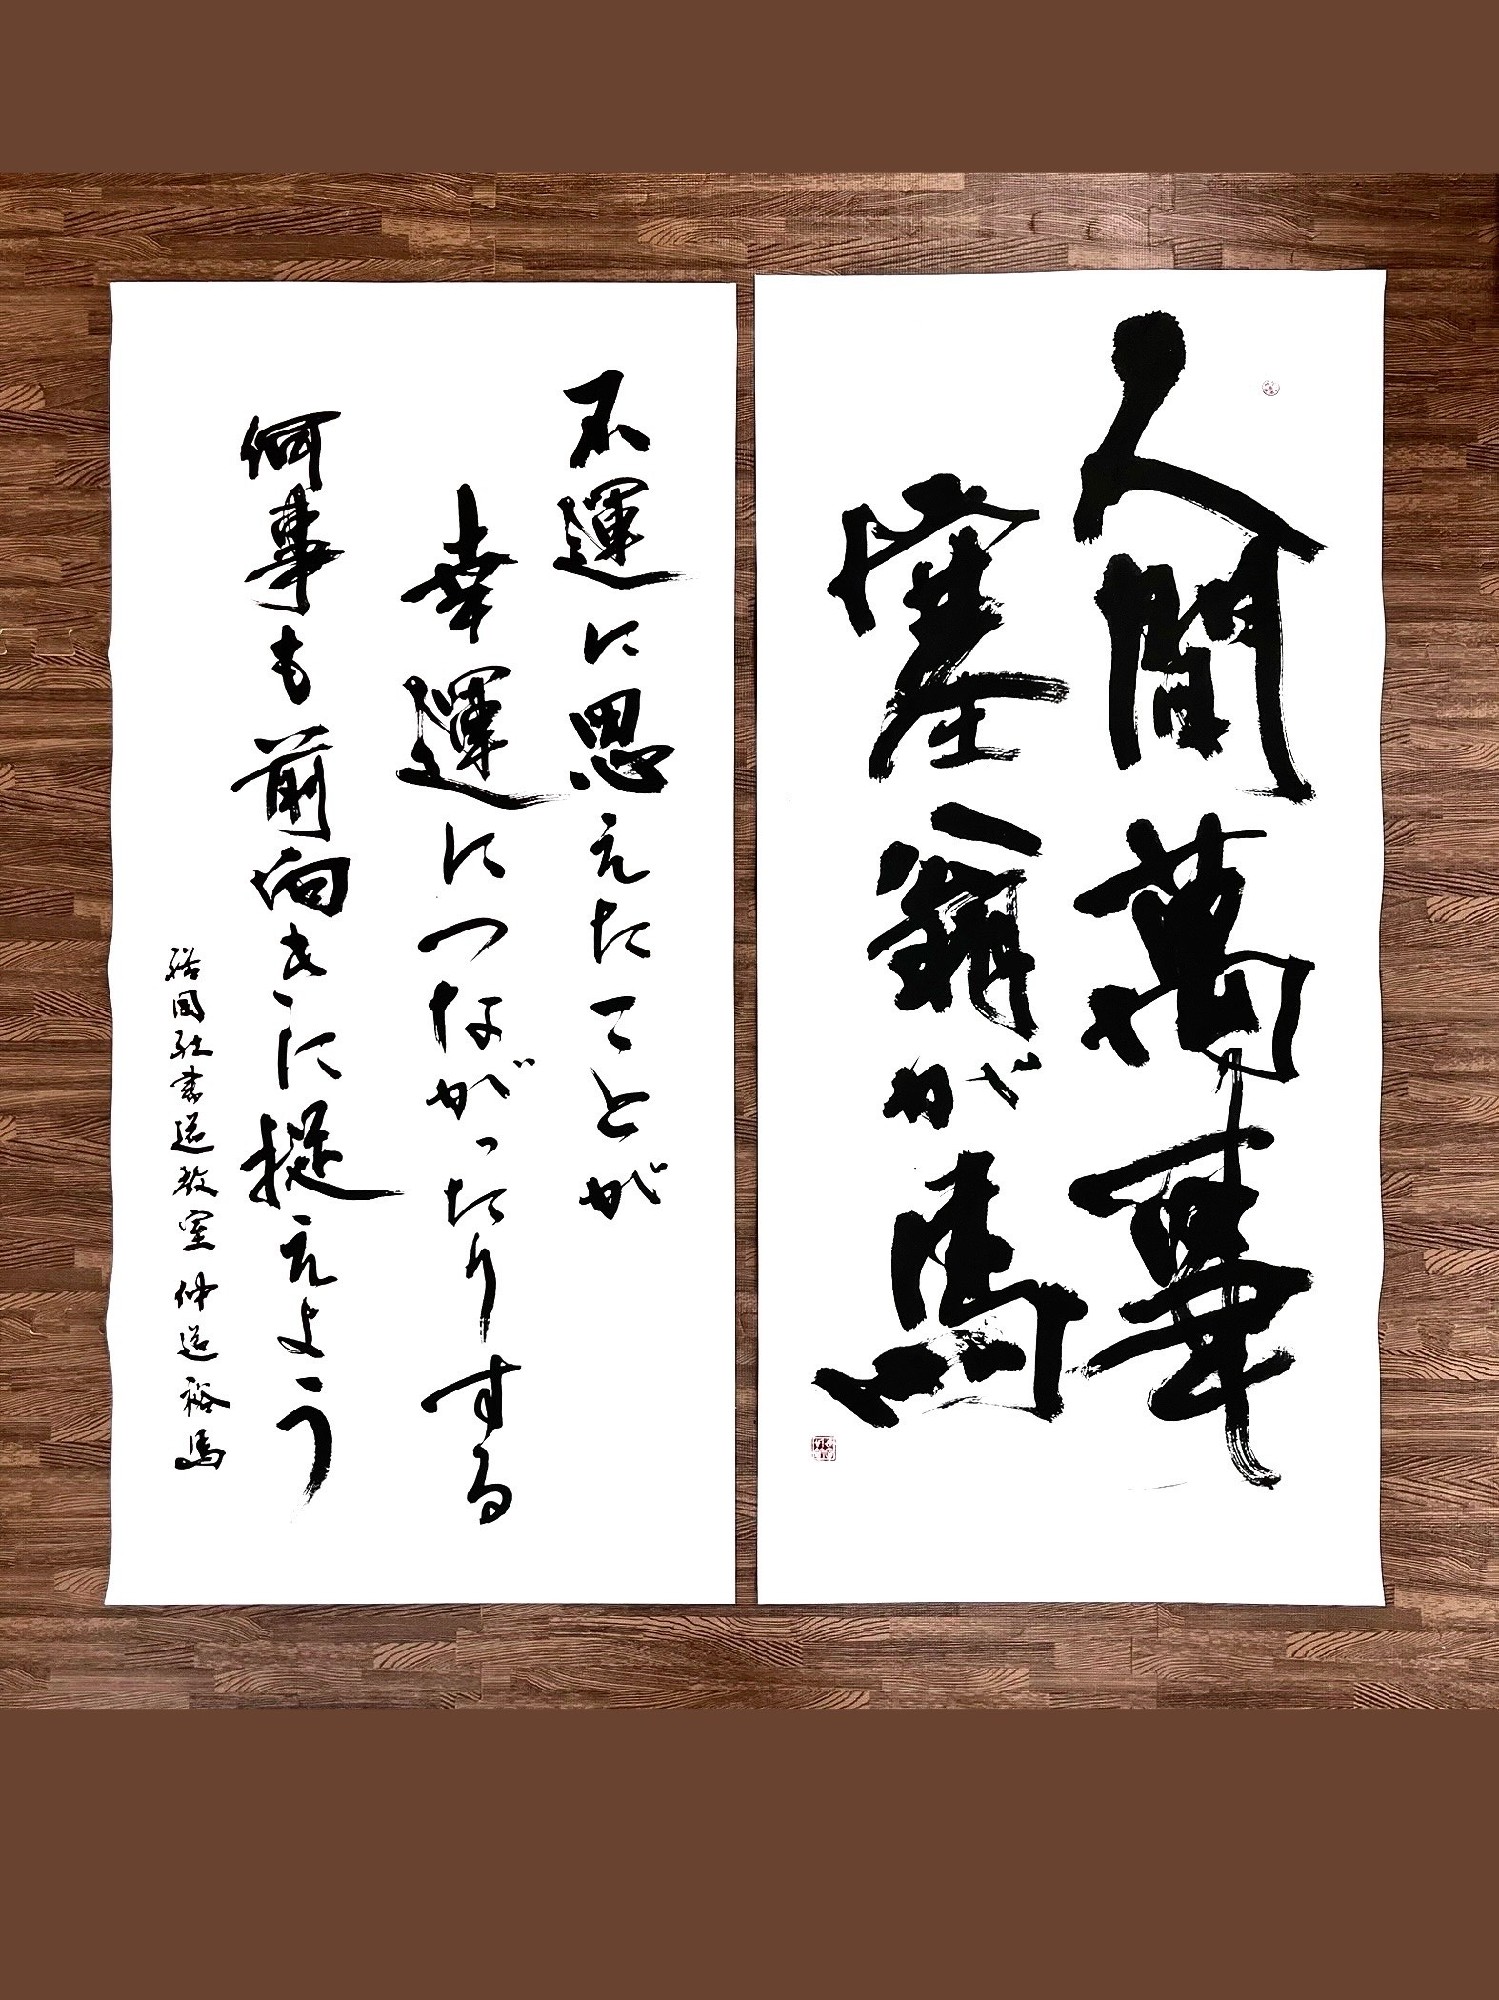 人間萬事
塞翁が馬
不運に思えたことが
幸運につながったりする
何事も前向きに捉えよう
書道教室 仲道裕馬